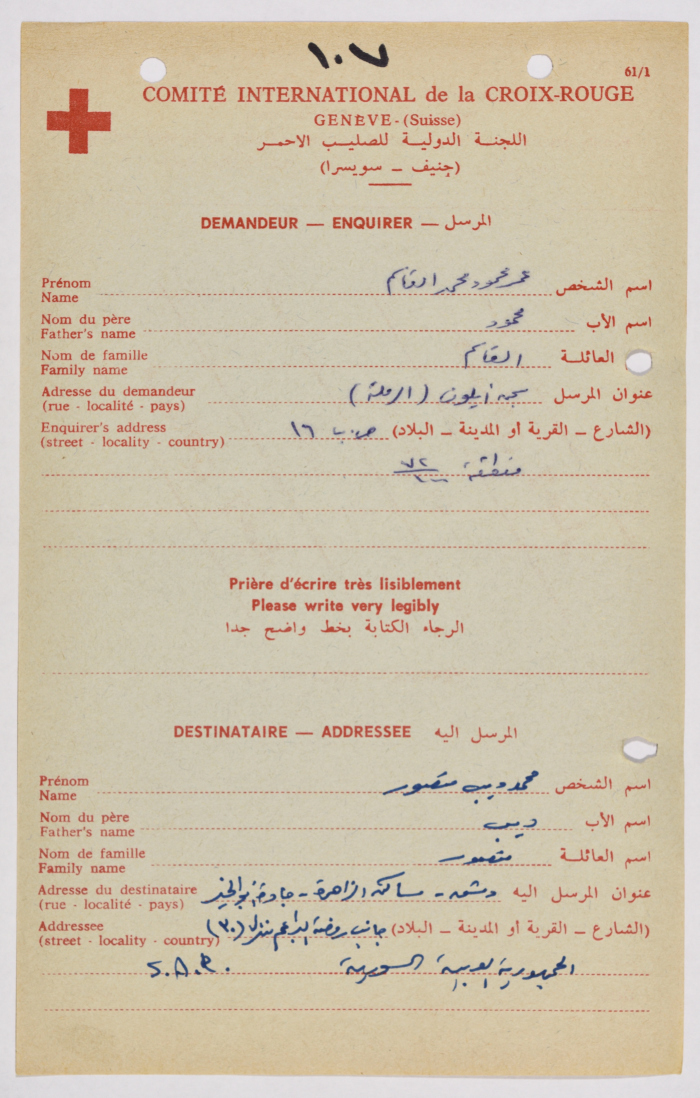 ١٠٧
61/1
COMITÉ INTERNATIONAL de la CROIX-ROUGE
GENÈVE - (Suisse)
اللجنـة الدوليـة للصليـب الاحمـر
(جنيف ــ سويسرا)
DEMANDEUR — ENQUIRER — المرسل
Prénom
Name
عمر محمود محمد القاسم
اسم الشخص
Nom du père
Father's name
محمود
اسم الأب
Nom de famille
Family name
القاسم
العائلـة
Adresse du demandeur
(rue - localité - pays)
سجن أيلون (الرملة)
عنوان المرسل
Enquirer's address
(street - locality - country)
ص.ب ١٦
(الشارع ــ القرية أو المدينة ــ البلاد)
منطقة ٧٢/١٠٠
Prière d'écrire très lisiblement
Please write very legibly
الرجاء الكتابة بخط واضح جدا
DESTINATAIRE — ADDRESSEE المرسل اليه
Prénom
Name
محمد ديب منصور
اسم الشخص
Nom du père
Father's name
ديب
اسم الأب
Nom de famille
Family name
منصور
اسم العائلـة
Adresse du destinataire
(rue - localité - pays)
دمشق - مساكن الزاهرة - جادة
عنوان المرسل اليه
Addressee
(street - locality - country)
جانب روضة البراعم منزل (٣٠)
(الشارع ــ القرية أو المدينة ــ البلاد)
الجمهورية العربية السورية
S.A.R.